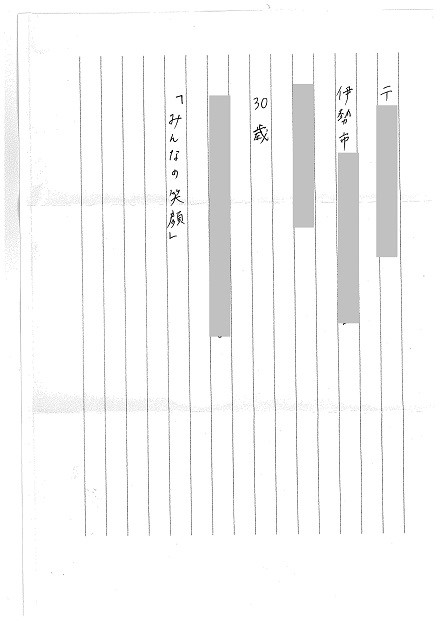 〒
伊勢市
30歳
「みんなの笑顔」